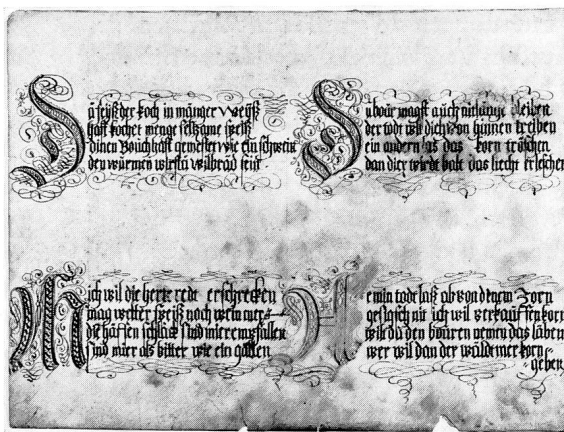 feyst der koch in mänger weyß
hast kochet menge seltzame speiß
dinen bouch hast gemestet wie ein schwein
den würmen wirstu wilbräd sein
bour magst auch nit lange bleiben
der tod wil dich von hinnen treiben
ein andern las das korn tröschen
dan dier wirde bald das liecht erleschen
Mich wil die herte rede erschrecken
mag weder speiß noch wein
die häffen schläck sind mier empfallen
sind mier als bitter wie ein gallen
tode laß ab von dynem Zorn
nit ich wil verkauffen korn
wilt du den bouren nemen das läben
wer wil dan der wäld mer korn
geben